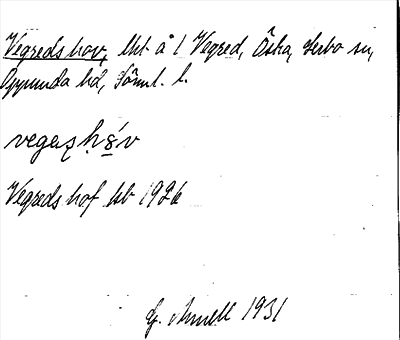 Vegreds hov, lht å 1 Vegred, Åska, Lerbo sn,
Oppunda hd, Söml. l.
vegaz hóv
Vegreds hof kb 1926
G. Amnell 1931